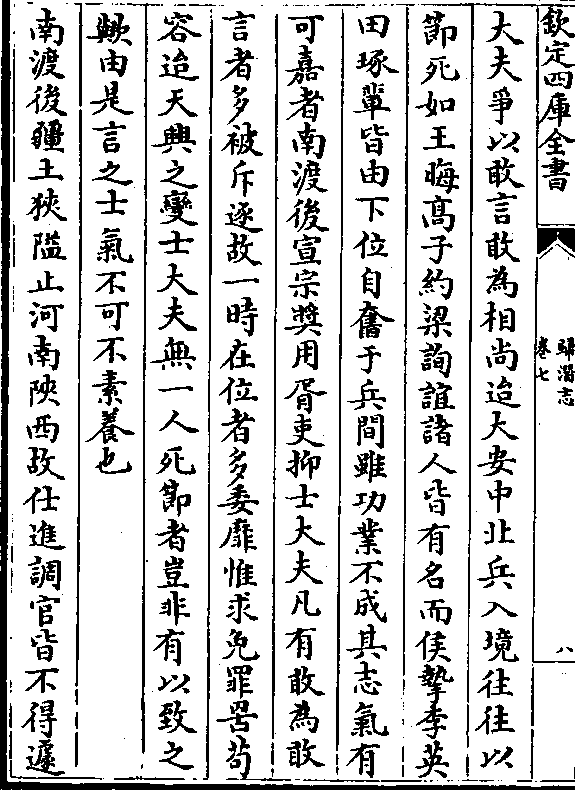 欽定四庫全書
歸潛志
卷七
八
大夫爭以敢言敢為相尚迨大安中北兵入境往往以
節死如王晦髙子約梁詢誼諸人皆有名而侯摯李英
田琢輩皆由下位自奮于兵間雖功業不成其志氣有
可嘉者南渡後宣宗奬用胥吏抑士大夫凡有敢為敢
言者多被斥逐故一時在位者多委靡惟求免罪罟茍
容迨天興之變士大夫無一人死節者豈非有以致之
歟由是言之士氣不可不素養也
南渡後疆土狹隘止河南陜西故仕進調官皆不得遽